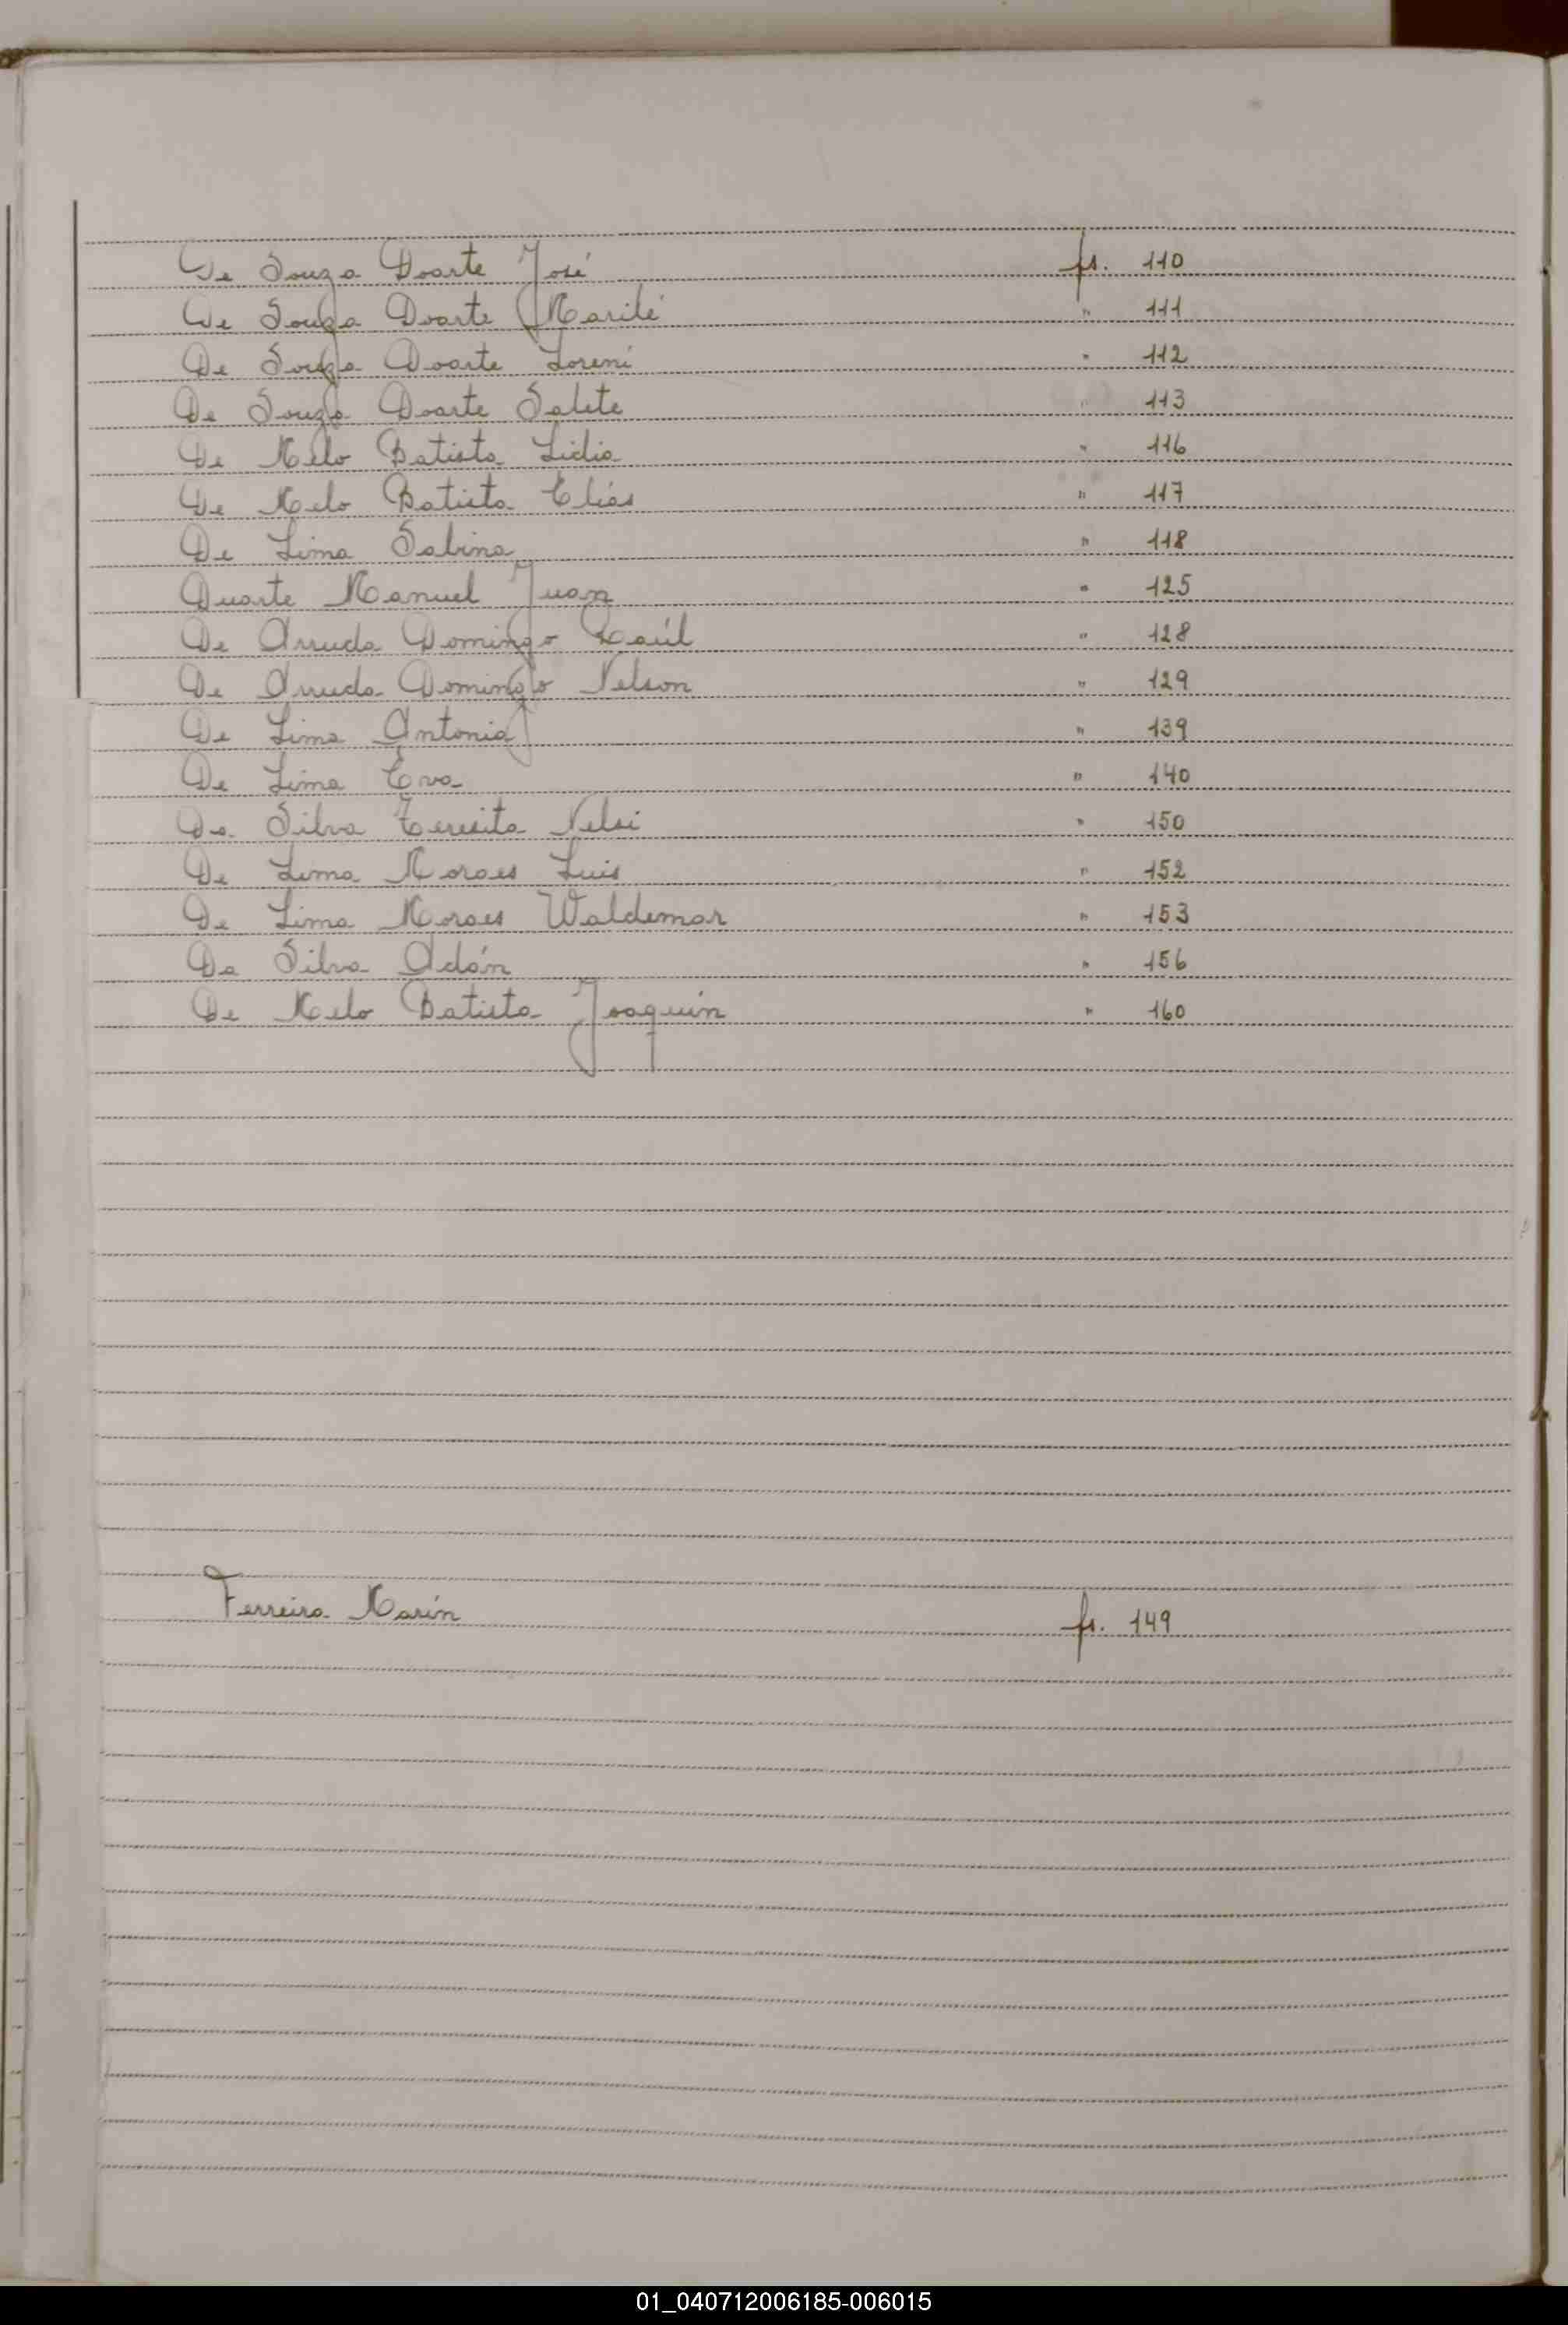 De Souza Doarte José fs. 110
De Souza Doarte Marilé " 111
De Souza Doarte Loreni " 112
De Souza Doarte Salete " 113
De Melo Batista Lidia " 116
De Melo Batista Elías " 117
De Lima Sabina " 118
Duarte Manuel Juan " 125
De Arruda Domingo Raúl " 128
De Arruda Domingo Nelson " 129
De Lima Antonia " 139
De Lima Eva " 140
Da Silva Teresita Nelsi " 150
De Lima Moraes Luis " 152
De Lima Moraes Waldemar " 153
Da Silva Adán " 156
De Melo Batista Joaquín " 160
Ferreira Marín fs. 149
01_040712006185-006015